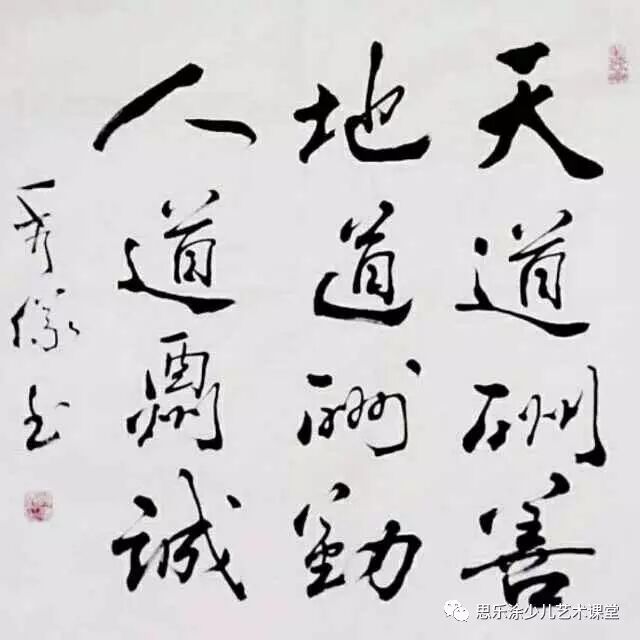 天道酬善
地道酬勤
人道酬誠
思乐涂少儿艺术课堂